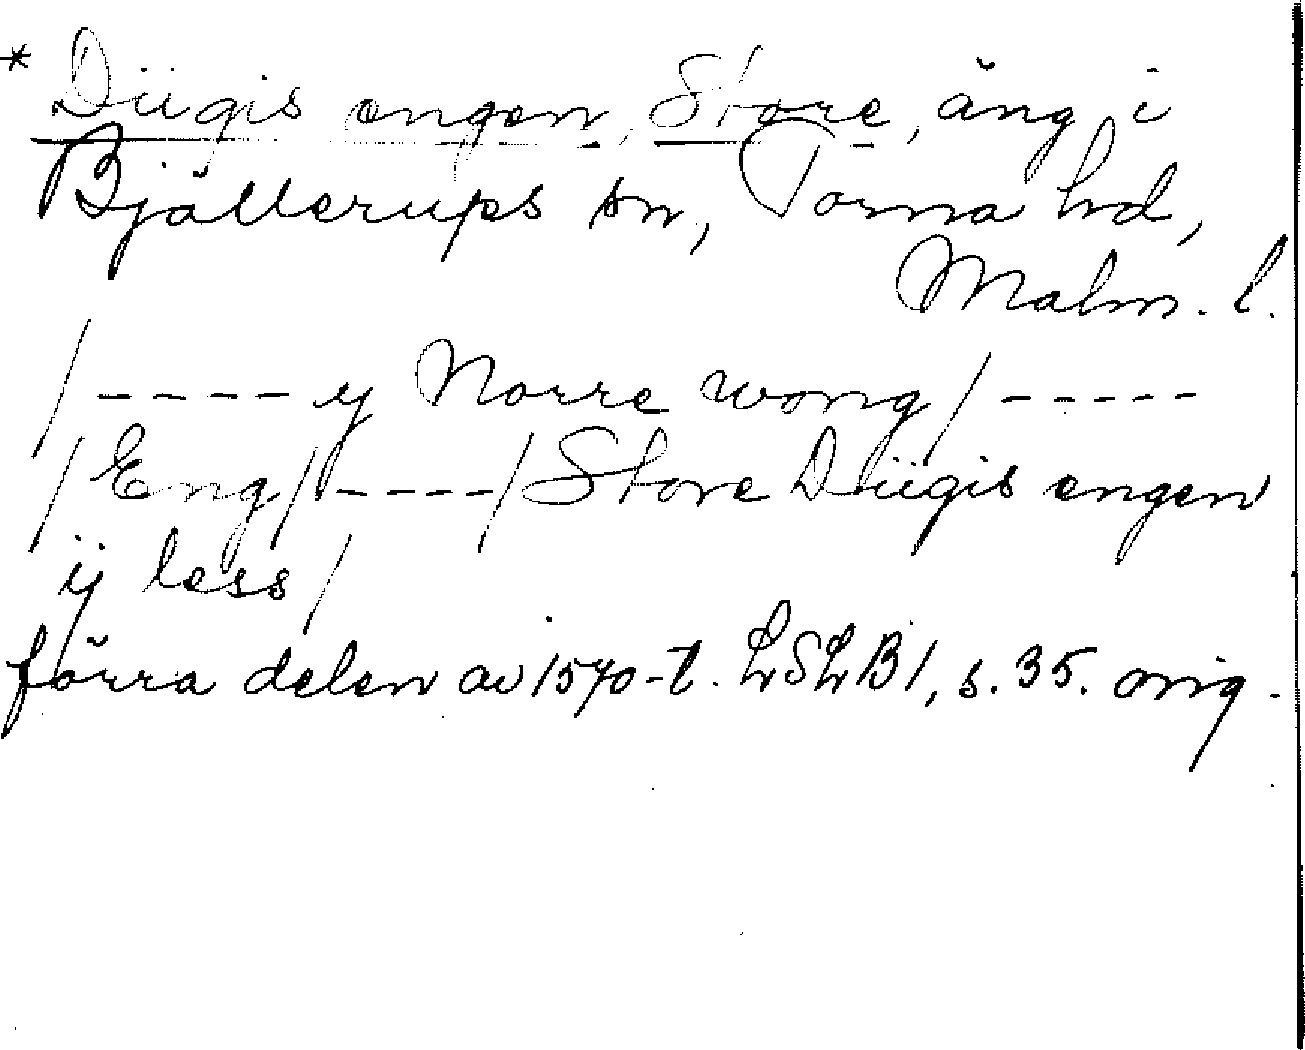 * Dügis engen, Store, äng i
Bjällerups sn, Torna hd,
Malm. l.
/ - - - - - y Norre wong / - - - - -
/ Eng / - - - - / Store Dügis engen
ij less /
förra delen av 1570-t. LSLB1, s. 35. orig.